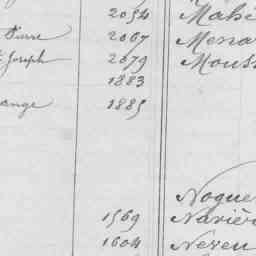 2054 Mahé
Pierre 2067 Mena
Joseph 2079 Mouss
1883
ange 1885
Nogue
1569 Naviè
1604 Neveu